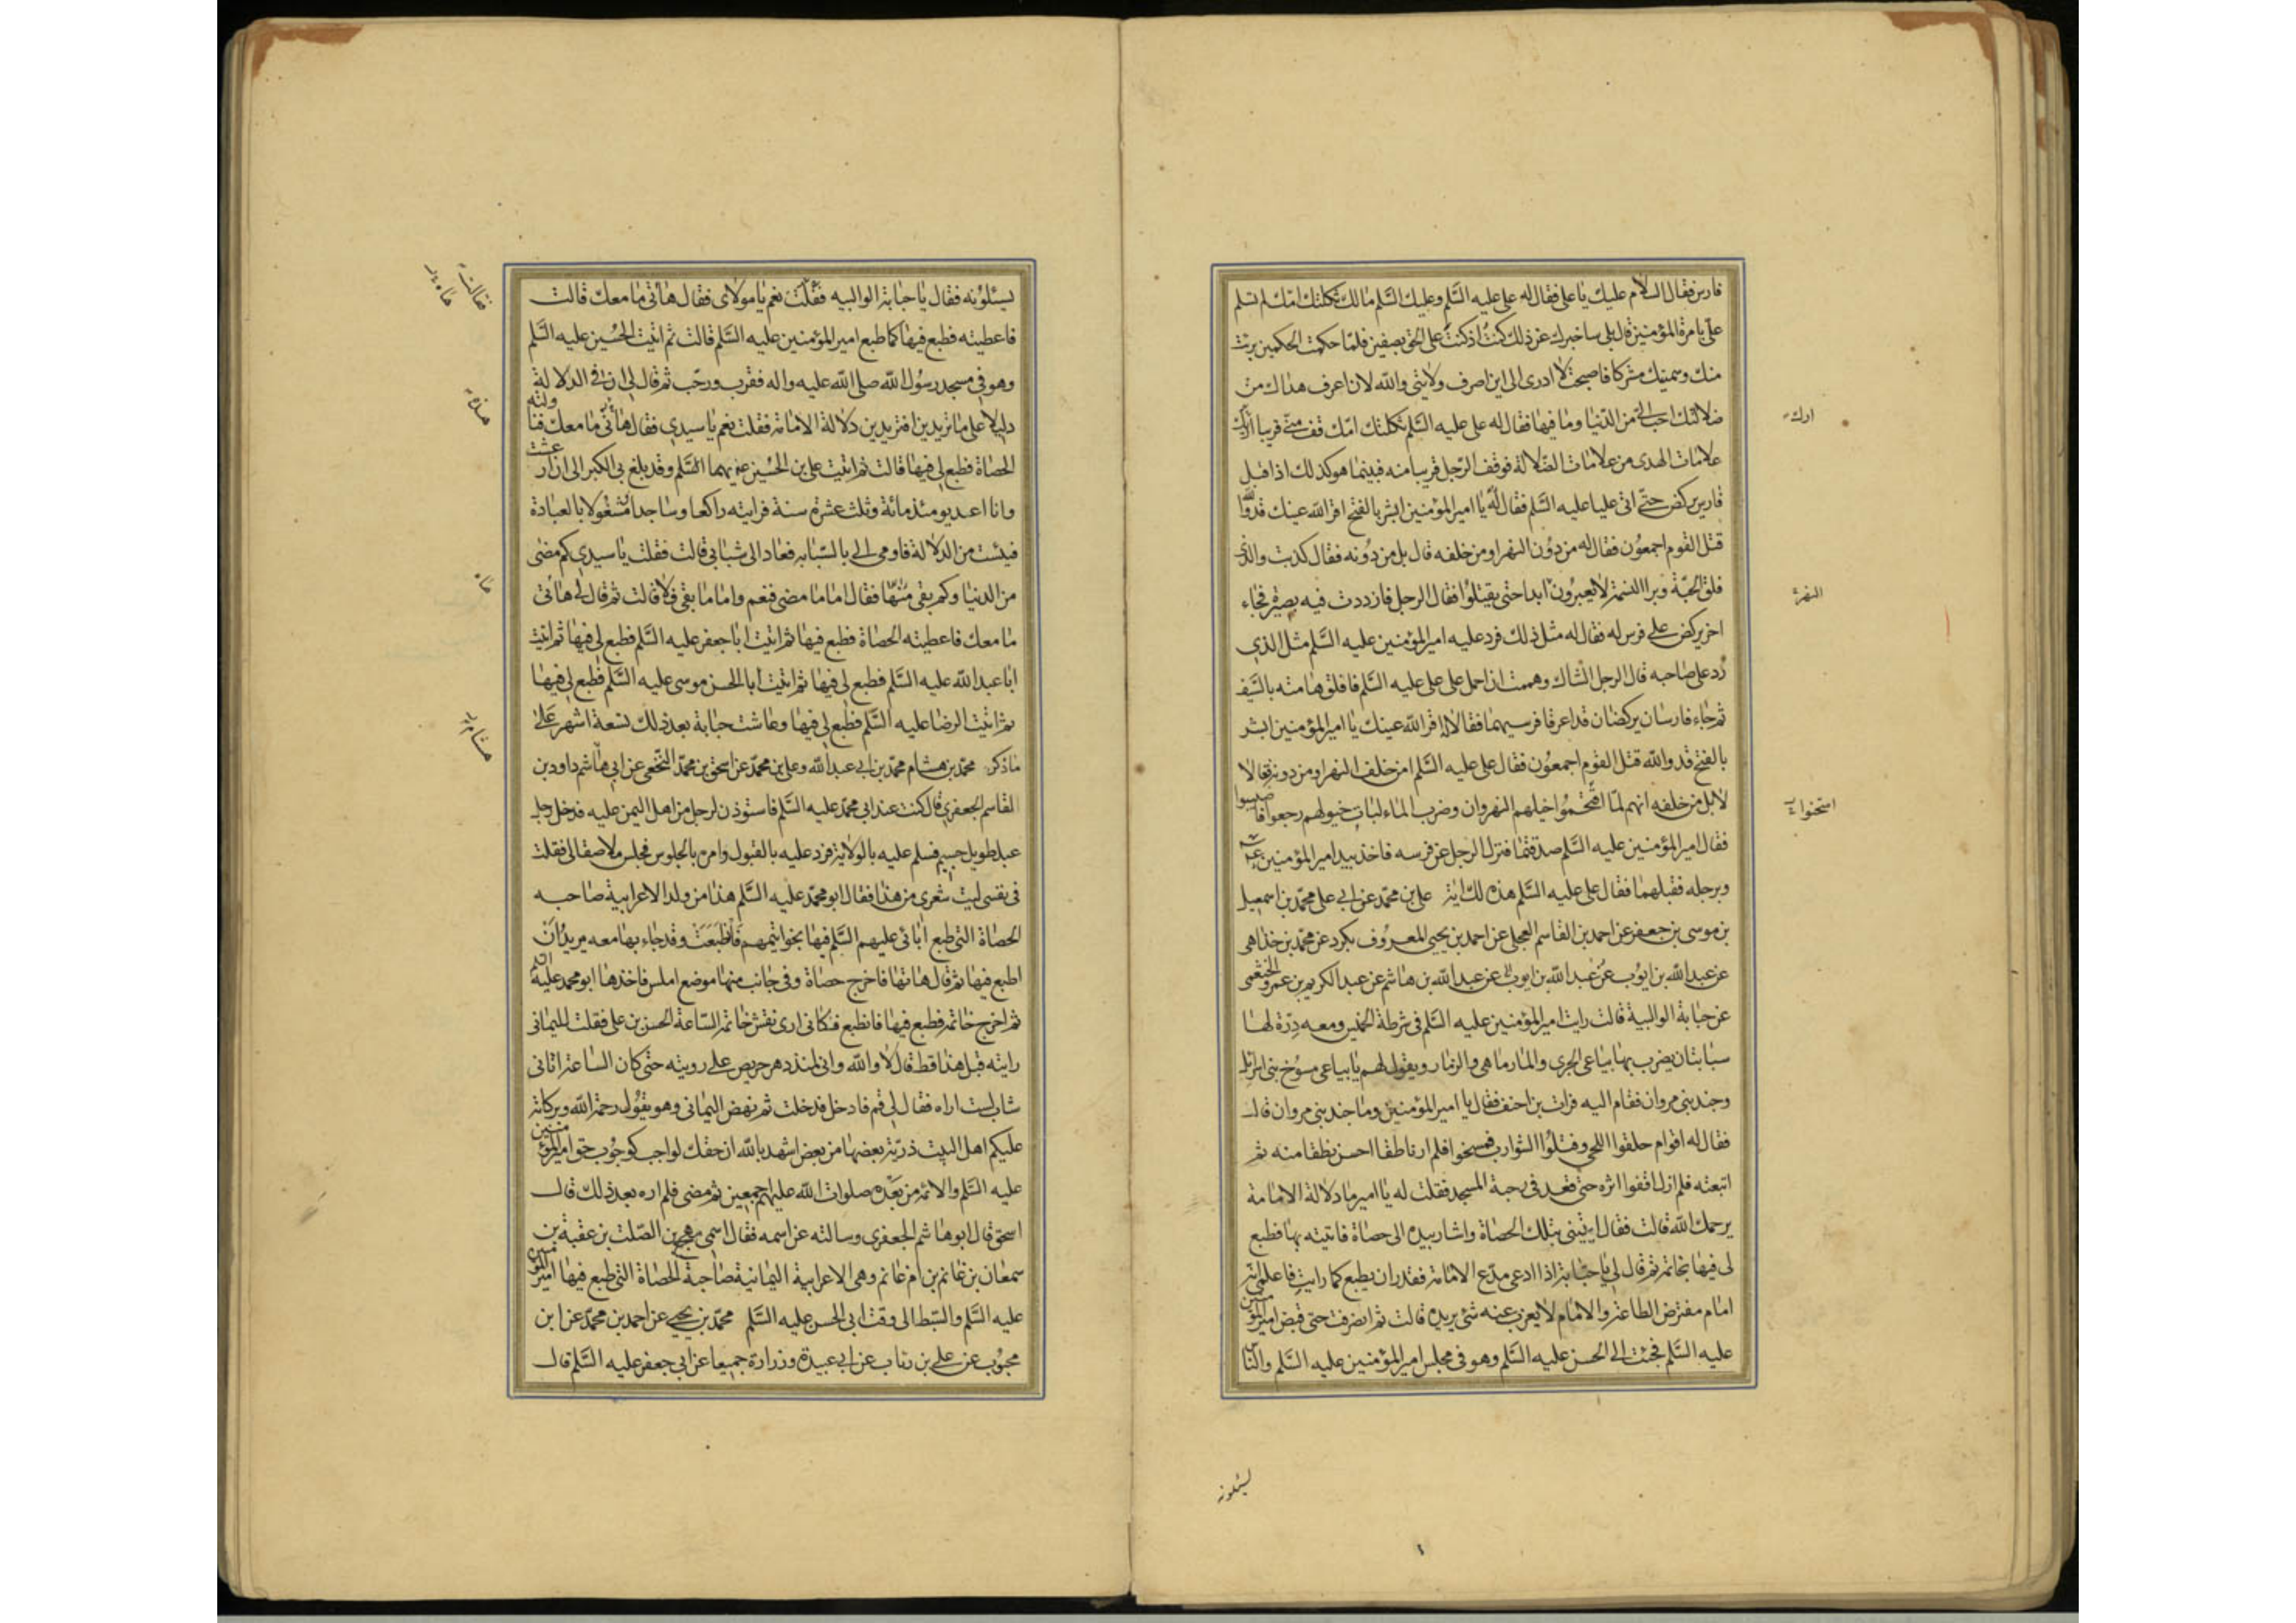 فارس فقال السلام عليك يا على فقال له على عليه السَّلم وعليك السَّلم مالك ثكلتك امّك لم تسلم
علىّ بامرة المؤمنين قال بلى ساخبرك عن ذلك كنتُ اذ كنتَ على الحق بصفين فلمّا حكمت الحكمين برئت
منك وسميتك مشركا فاصبحت لا ادرى الى اين اصرف ولايتى والله لان اعرف هداك من
ضلالتك احب الىّ من الدّنيا وما فيها فقال له على عليه السَّلم ثكلتك امّك قف منّى قريبا اريك
علامات الهدى من علامات الضّلالة فوقف الرّجل قريبا منه فبينما هو كذلك اذ اقبل
فارس يركض حتّى اتى عليا عليه السَّلم فقال له يا امير المؤمنين ابشر بالفتح اقر الله عينك قد والله
قتل القوم اجمعون فقال له من دُون النهر او من خلفه قال بل من دُونه فقال كذبت والذى
فلق الحبّة وبرا النسمة لا يعبرُون ابدا حتى يقتلُوا فقال الرجل فازددت فيه بصيرة فجاء
اخر يركض على فرس له فقال له مثل ذلك فرد عليه امير المؤمنين عليه السَّلم مثل الذي
رُد على صاحبه قال الرجل الشاك وهممت ان احمل على على عليه السَّلم فافلق هامته بالسَّيف
ثم جاء فارسان يركضان قد اعرقا فرسيهما فقالا اقر الله عينك يا امير المؤمنين ابشر
بالفتح قد والله قتل القوم اجمعون فقال على عليه السَّلم امن خلف النهر او من دونه قالا
لا بل من خلفه انهم لمّا اقتحمُوا خيلهم النهروان وضرب الماء لبات خيولهم رجعوا فاصيبوا
فقال امير المؤمنين عليه السَّلم صدقتما فنزل الرجل عن فرسه فاخذ بيد امير المؤمنين ع
وبرجله فقبلهما فقال على عليه السَّلم هذه لك اية على بن محمّد عن ابى على محمّد بن اسمعيل
بن موسى بن جعفر عن احمد بن القاسم العجلى عن احمد بن يحيى المعروُف بكرد عن محمّد بن خداهى
عن عبد الله بن ايوُب عن عبد الله بن هاشم عن عبد الكريم بن عمرو الخثعمى
عن حبابة الوالبية قالت رايت امير المؤمنين عليه السَّلم فى شرطة الخميس ومعه دِرّة لها
سبابتان يضرب بها بياعى الجرى والمارماهى والزمار ويقول لهم يا بياعى مسوُخ بنى اسرائيل
وجند بنى مروان فقام اليه فرات بن احنف فقال يا امير المؤمنين وما جند بنى مروان قال
فقال له اقوام حلقوا اللحى وفتلُوا الشوارب فمسخوا فلم ار ناطقا احسن نطقا منه ثم
اتبعته فلم ازل اقفوا اثره حتى قعد فى رحبة المسجد فقلت له يا امير ما دلالة الامامة
يرحمك الله قالت فقال ايتينى بتلك الحصاة واشار بيده الى حصاة فاتيته بها فطبع
لى فيها بخاتمه ثم قال لى يا حبّابة اذا ادعى مدّع الامامة فقدر ان يطبع كما رايت فاعلمى انّه
امام مفترض الطاعة والامام لا يعزب عنه شئ يريده قالت ثم انصرفت حتى قبض امير المؤمنين
عليه السَّلم فجئت الى الحسن عليه السَّلم وهو فى مجلس امير المؤمنين عليه السَّلم والناس
ارك
النهر
يسئلونه
يسئلوُنه فقال يا حبابة الوالبيه فقلتُ نعم يا مولاى فقال هاتى ما معك قالت
فاعطيته فطبع فيها كما طبع امير المؤمنين عليه السَّلم قالت ثم اتيت الحُسين عليه السَّلم
وهو فى مسجد رسُول الله صلى الله عليه واله فقرب ورحّب ثم قال لى ان فى الدلالة
دليلا على ما تريدين افتريدين دلالة الامامة فقلت نعم يا سيدى فقال هاتى ما معك فناولته
الحصاة فطبع لى فيها قالت ثم اتيت على بن الحُسين عليهما السَّلم وقد بلغ بى الكبر الى ان ارعشت
وانا اعد يومئذ مائة وثلث عشرة سنة فرايته راكعا وساجدا مُشغُولا بالعبادة
فيئست من الدلالة فاومى الى بالسّبابه فعاد الى شبابى قالت فقلت يا سيدى كم مضى
من الدنيا وكم بقى منها فقال اما ما مضى فنعم واما ما بقى فلا قالت ثم قال لى هاتى
ما معك فاعطيته الحصاة فطبع فيها ثم اتيت ابا جعفر عليه السَّلم فطبع لى فيها ثم اتيت
ابا عبد الله عليه السَّلم فطبع لى فيها ثم اتيت ابا الحسن موسى عليه السَّلم فطبع لى فيها
ثم اتيت الرضا عليه السَّلم فطبع لى فيها وعاشت حبابة بعد ذلك تسعة اشهر عَلى
ماذكر محمّد بن هشام محمّد بن ابى عبد الله وعلى بن محمّد عن اسحق بن محمّد النخعى عن ابى هاشم داود بن
القاسم الجعفرى قال كنت عند ابى محمّد عليه السَّلم فاستوذن لرجل من اهل اليمن عليه فدخل رجل
عبل طويل جسيم فسلم عليه بالولاية فرد عليه بالقبول وامره بالجلوس فجلس ملاصقا لى فقلت
فى نفسى ليت شعرى من هذا فقال ابو محمّد عليه السَّلم هذا من ولد الاعرابية صاحبه
الحصاة التى طبع ابائى عليهم السَّلم فيها بخواتيمهم فانطبَعَت وقد جاء بها معه يريدُ ان
اطبع فيها ثم قال هاتها فاخرج حصاة وفى جانب منها موضع املس فاخذها ابو محمد عليه السلم
ثم اخرج خاتمه فطبع فيها فانطبع فكانى ارى نقش خاتمه السّاعة الحسن بن على فقلت لليمانى
رايته قبل هذا قط قال لا والله وانى لمنذ دهر حريص على رويته حتى كان الساعة اتانى
شاب لست اراه فقال لى قم فادخل فدخلت ثم نهض اليمانى وهو يقُول رحمة الله وبركاته
عليكم اهل البيت ذريّة بعضها من بعض اشهد بالله ان حقك لواجب كوجُوب حق امير المؤمنين
عليه السَّلم والائمة من بعده صلوات الله عليهم اجمعين ثم مضى فلم اره بعد ذلك قال
اسحق قال ابو هاشم الجعفرى وسالته عن اسمه فقال اسمى مهجع بن الصّلت بن عقبة بن
سمعان بن غانم بن ام غانم وهى الاعرابية اليمانية صاحبة الحصاة التى طبع فيها امير المؤمنين
عليه السَّلم والسّبط الى وقت ابى الحسن عليه السَّلم محمّد بن يحيى عن احمد بن محمّد عن ابن
محبُوب عن على بن رئاب عن ابى عبيدة وزرارة جميعا عن ابى جعفر عليه السَّلم قال
فقالت
هذه